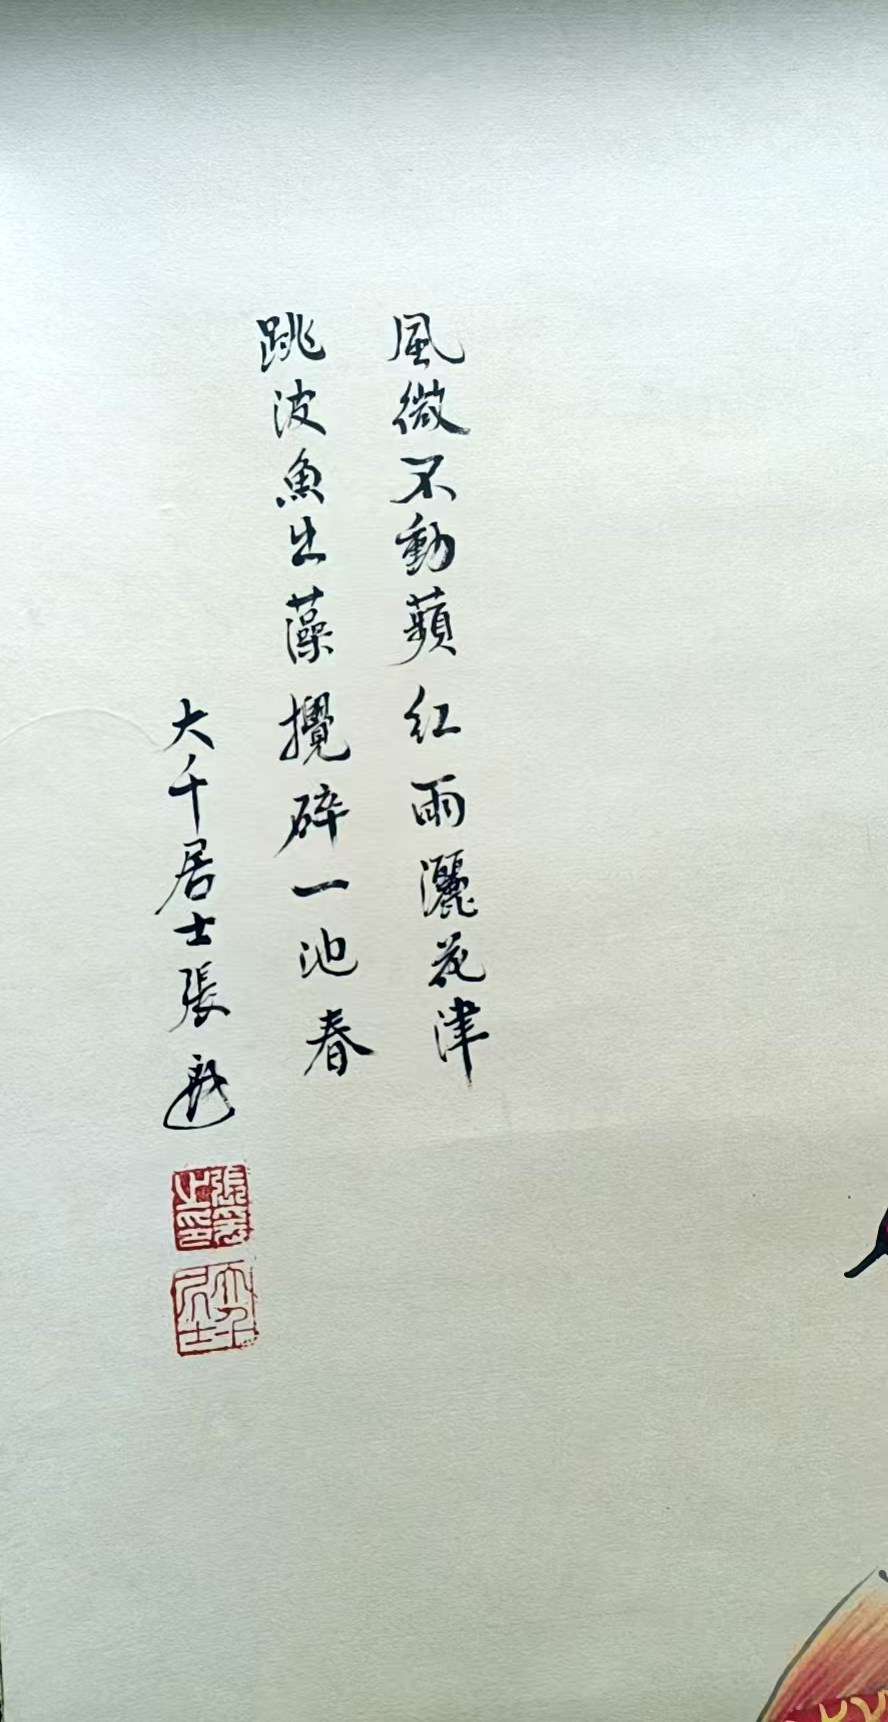 風微不動蘋紅雨灑花津
跳波魚出藻攪碎一池春
大千居士張爰
張爰之印
大千居士